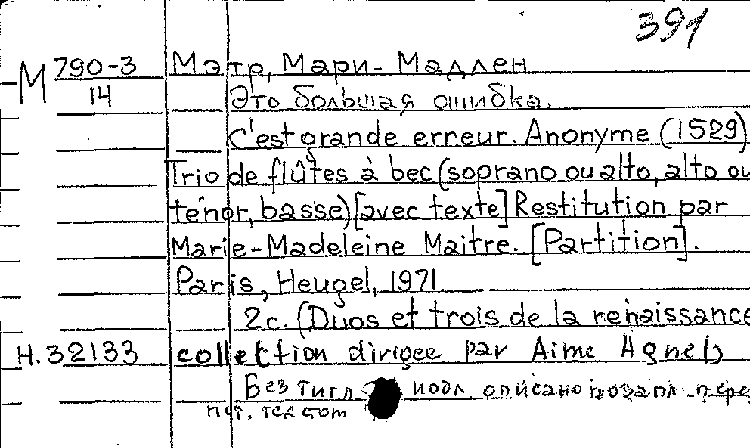 391
М 790-3 Мэтр, Мари-Мадлен
14 Это большая ошибка.
C'est grande erreur. Anonyme (1529)
Trio de flûtes à bec (soprano ou alto, alto ou
ténor, basse) [avec texte] Restitution par
Marie-Madeleine Maitre. [Partition].
Paris, Heugel, 1971
2c. (Duos et trois de la renaissance
H.32133 collection dirigee par Aime Agnel)
Без титл. описано
текстом